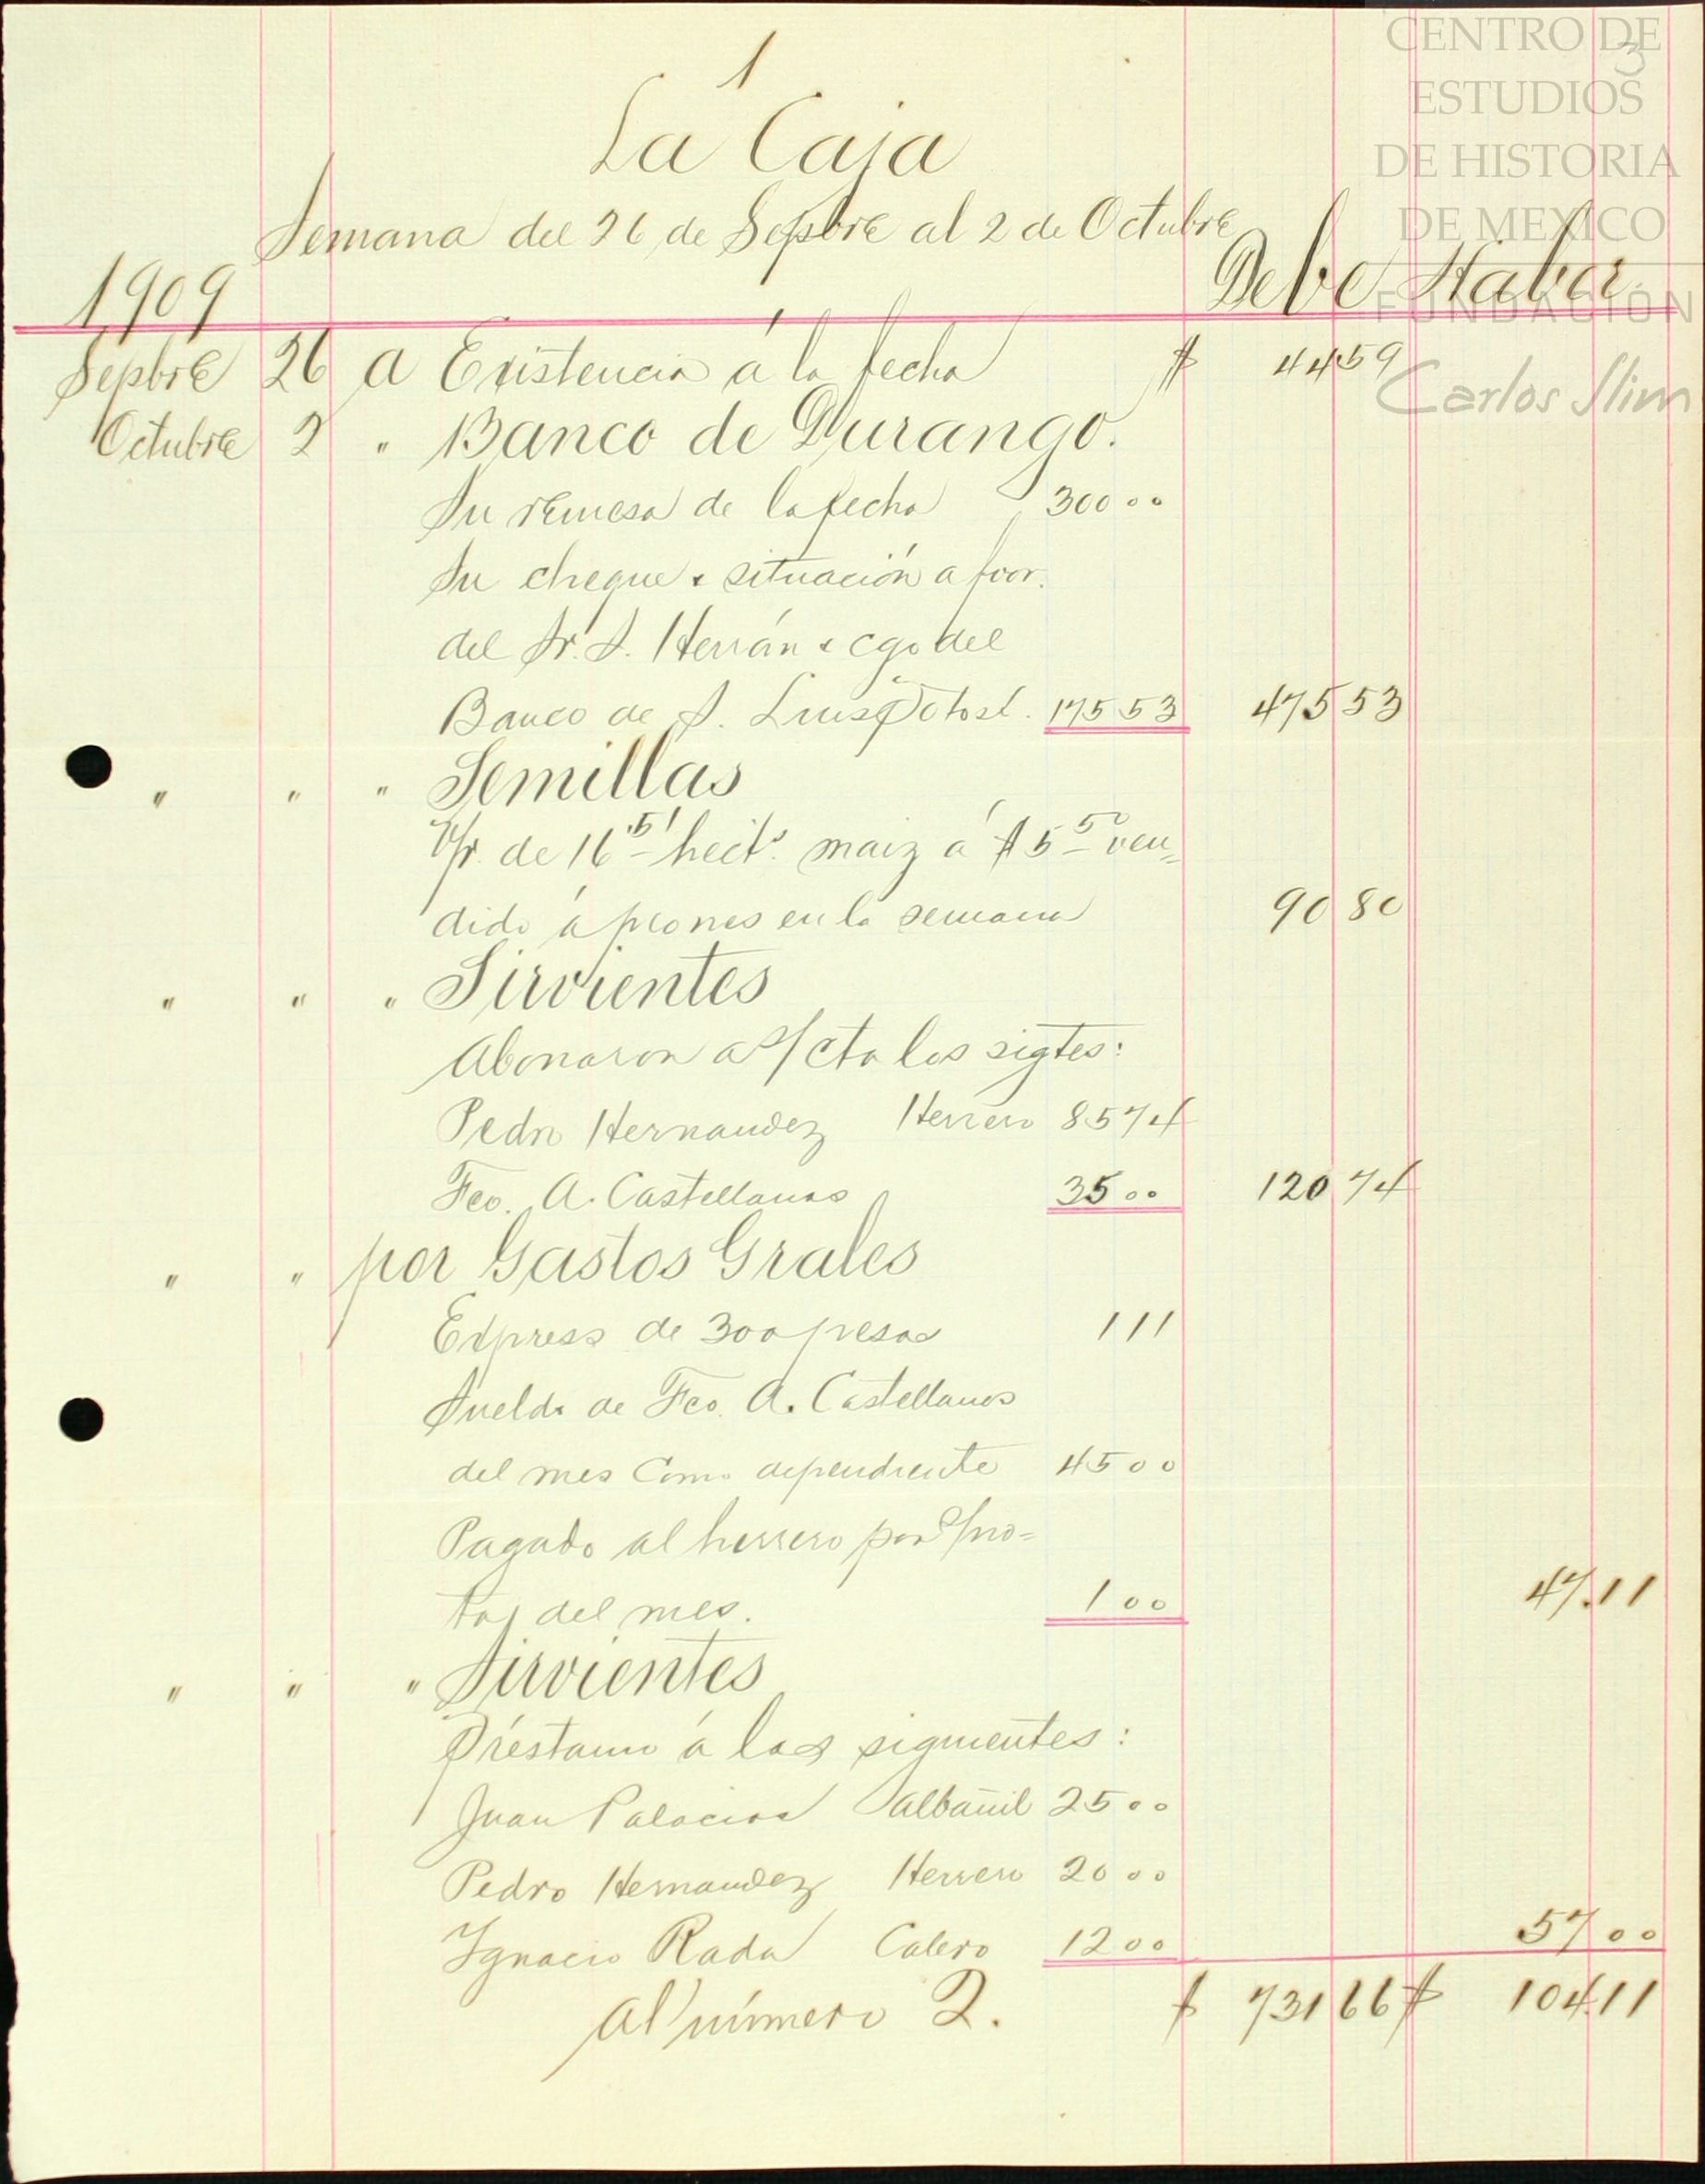 1
3
CENTRO DE
ESTUDIOS
DE HISTORIA
DE MEXICO
FUNDACIÓN
Carlos Slim
La Caja
Semana del 26 de Sepbre al 2 de Octubre
1909 Debe Haber
Sepbre 26 a Existencia á la fecha $ 44 59
Octubre 2 " Banco de Durango.
Su remesa de la fecha 300 00
Su cheque & situación a fvor.
del Sr. S. Herrán & cgo del
Banco de S. Luis Potosí. 175 53 475 53
" " " Semillas
V/r. de 16 51 hect.s maiz á $5 50 ven=
dido á peones en la semana 90 80
" " " Sirvientes
Abonaron a s/ cta los sigtes:
Pedro Hernandez Herrero 85 74
Fco. A. Castellanos 35 00 120 74
" " por Gastos Grales
Express de 300 pesos 1 11
Sueldo de Fco. A. Castellanos
del mes como dependiente 45 00
Pagado al herrero por s/ mo=
tas del mes. 1 00 47.11
" " " Sirvientes
Préstamo á los siguientes:
Juan Palacios albañil 25 00
Pedro Hernandez Herrero 20 00
Ignacio Rada Calero 12 00 57 00
Al número 2. $ 731 66 $ 104 11